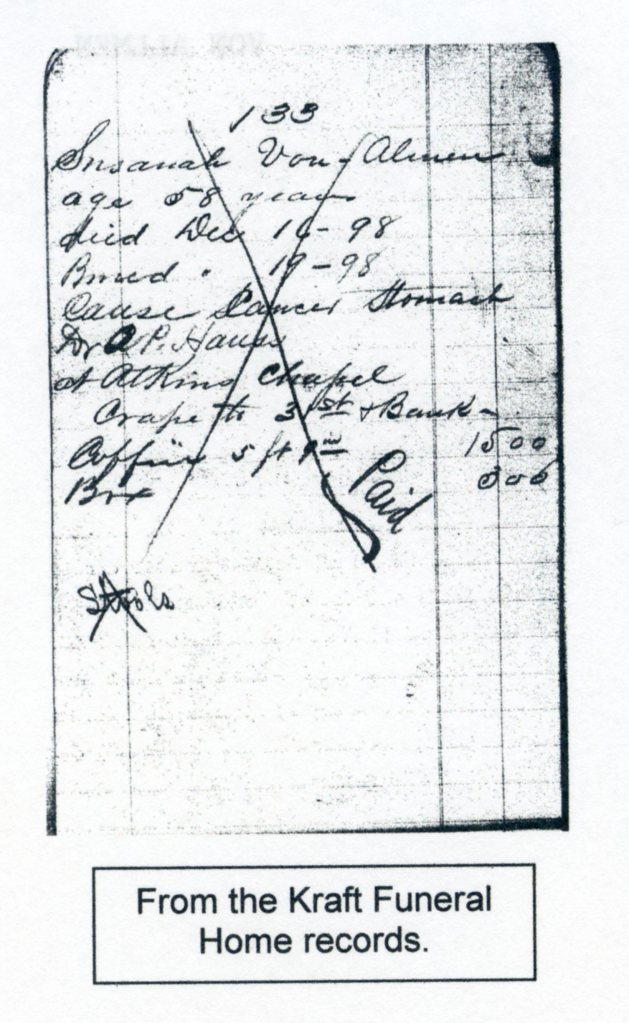 133
Susanah Von Almen
age 58 years
died Dec 16 - 98
Buried " 19 - 98
Cause Cancer Stomach
Dr P. Hauss
at Atkins Chapel
Crape to 31st & Bank -
Coffin 5 ft 9 in 15 00
Box 3 00
Paid
Stools
From the Kraft Funeral
Home records.